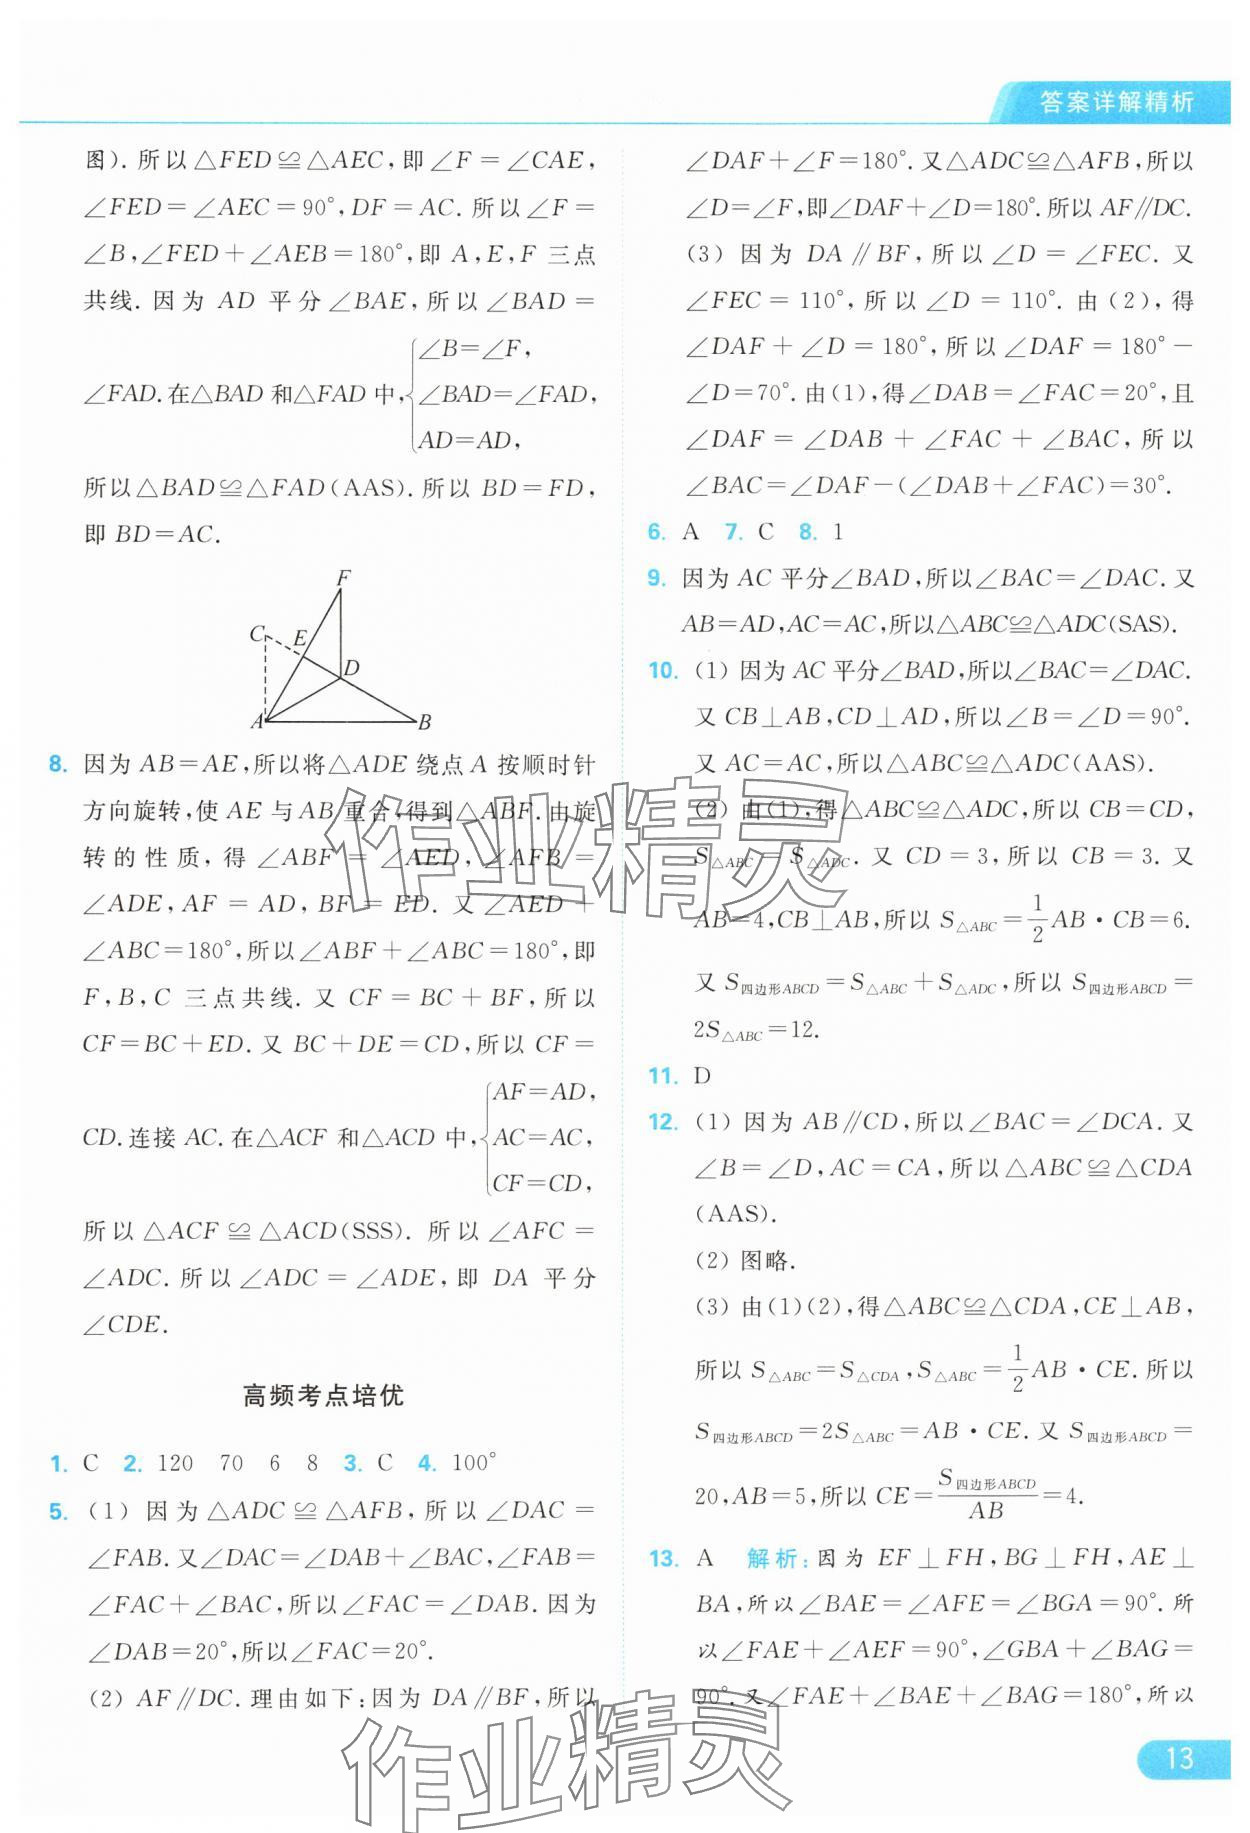 答案详解精析
图). 所以△FED≌△AEC,即∠F=∠CAE,
∠FED=∠AEC=90°,DF=AC. 所以∠F=
∠B,∠FED+∠AEB=180°,即 A,E,F 三点
共线. 因为 AD 平分∠BAE,所以∠BAD=
∠FAD. 在△BAD 和△FAD 中,
∠B=∠F,
∠BAD=∠FAD,
AD=AD,
所以△BAD≌△FAD(AAS). 所以 BD=FD,
即 BD=AC.
F
C
E
D
A
B
8. 因为 AB=AE,所以将△ADE 绕点 A 按顺时针
方向旋转,使 AE 与 AB 重合,得到△ABF. 由旋
转的性质,得∠ABF=∠AED,∠AFB=
∠ADE,AF=AD,BF=ED. 又∠AED+
∠ABC=180°,所以∠ABF+∠ABC=180°,即
F,B,C 三点共线. 又 CF=BC+BF,所以
CF=BC+ED. 又 BC+DE=CD,所以 CF=
CD. 连接 AC. 在△ACF 和△ACD 中,
AF=AD,
AC=AC,
CF=CD,
所以△ACF≌△ACD(SSS). 所以∠AFC=
∠ADC. 所以∠ADC=∠ADE,即 DA 平分
∠CDE.
高频考点培优
1. C 2. 120 70 6 8 3. C 4. 100°
5. (1) 因为△ADC≌△AFB,所以∠DAC=
∠FAB. 又∠DAC=∠DAB+∠BAC,∠FAB=
∠FAC+∠BAC,所以∠FAC=∠DAB. 因为
∠DAB=20°,所以∠FAC=20°.
(2) AF∥DC. 理由如下:因为 DA∥BF,所以
∠DAF+∠F=180°. 又△ADC≌△AFB,所以
∠D=∠F,即∠DAF+∠D=180°. 所以 AF∥DC.
(3) 因为 DA∥BF,所以∠D=∠FEC. 又
∠FEC=110°,所以∠D=110°. 由(2),得
∠DAF+∠D=180°,所以∠DAF=180°−
∠D=70°. 由(1),得∠DAB=∠FAC=20°,且
∠DAF=∠DAB+∠FAC+∠BAC,所以
∠BAC=∠DAF−(∠DAB+∠FAC)=30°.
6. A 7. C 8. 1
9. 因为 AC 平分∠BAD,所以∠BAC=∠DAC. 又
AB=AD,AC=AC,所以△ABC≌△ADC(SAS).
10. (1) 因为 AC 平分∠BAD,所以∠BAC=∠DAC.
又 CB⊥AB,CD⊥AD,所以∠B=∠D=90°.
又 AC=AC,所以△ABC≌△ADC(AAS).
(2) 由(1),得△ABC≌△ADC,所以 CB=CD,
S△ABC=S△ADC. 又 CD=3,所以 CB=3. 又
AB=4,CB⊥AB,所以 S△ABC=1/2 AB·CB=6.
又 S四边形ABCD=S△ABC+S△ADC,所以 S四边形ABCD=
2S△ABC=12.
11. D
12. (1) 因为 AB∥CD,所以∠BAC=∠DCA. 又
∠B=∠D,AC=CA,所以△ABC≌△CDA
(AAS).
(2) 图略.
(3) 由(1)(2),得△ABC≌△CDA,CE⊥AB,
所以 S△ABC=S△CDA,S△ABC=1/2 AB·CE. 所以
S四边形ABCD=2S△ABC=AB·CE. 又 S四边形ABCD=
20,AB=5,所以 CE=S四边形ABCD/AB=4.
13. A 解析:因为 EF⊥FH,BG⊥FH,AE⊥
BA,所以∠BAE=∠AFE=∠BGA=90°. 所
以∠FAE+∠AEF=90°,∠GBA+∠BAG=
90°. 又∠FAE+∠BAE+∠BAG=180°,所以
13
作业精灵
作业精灵